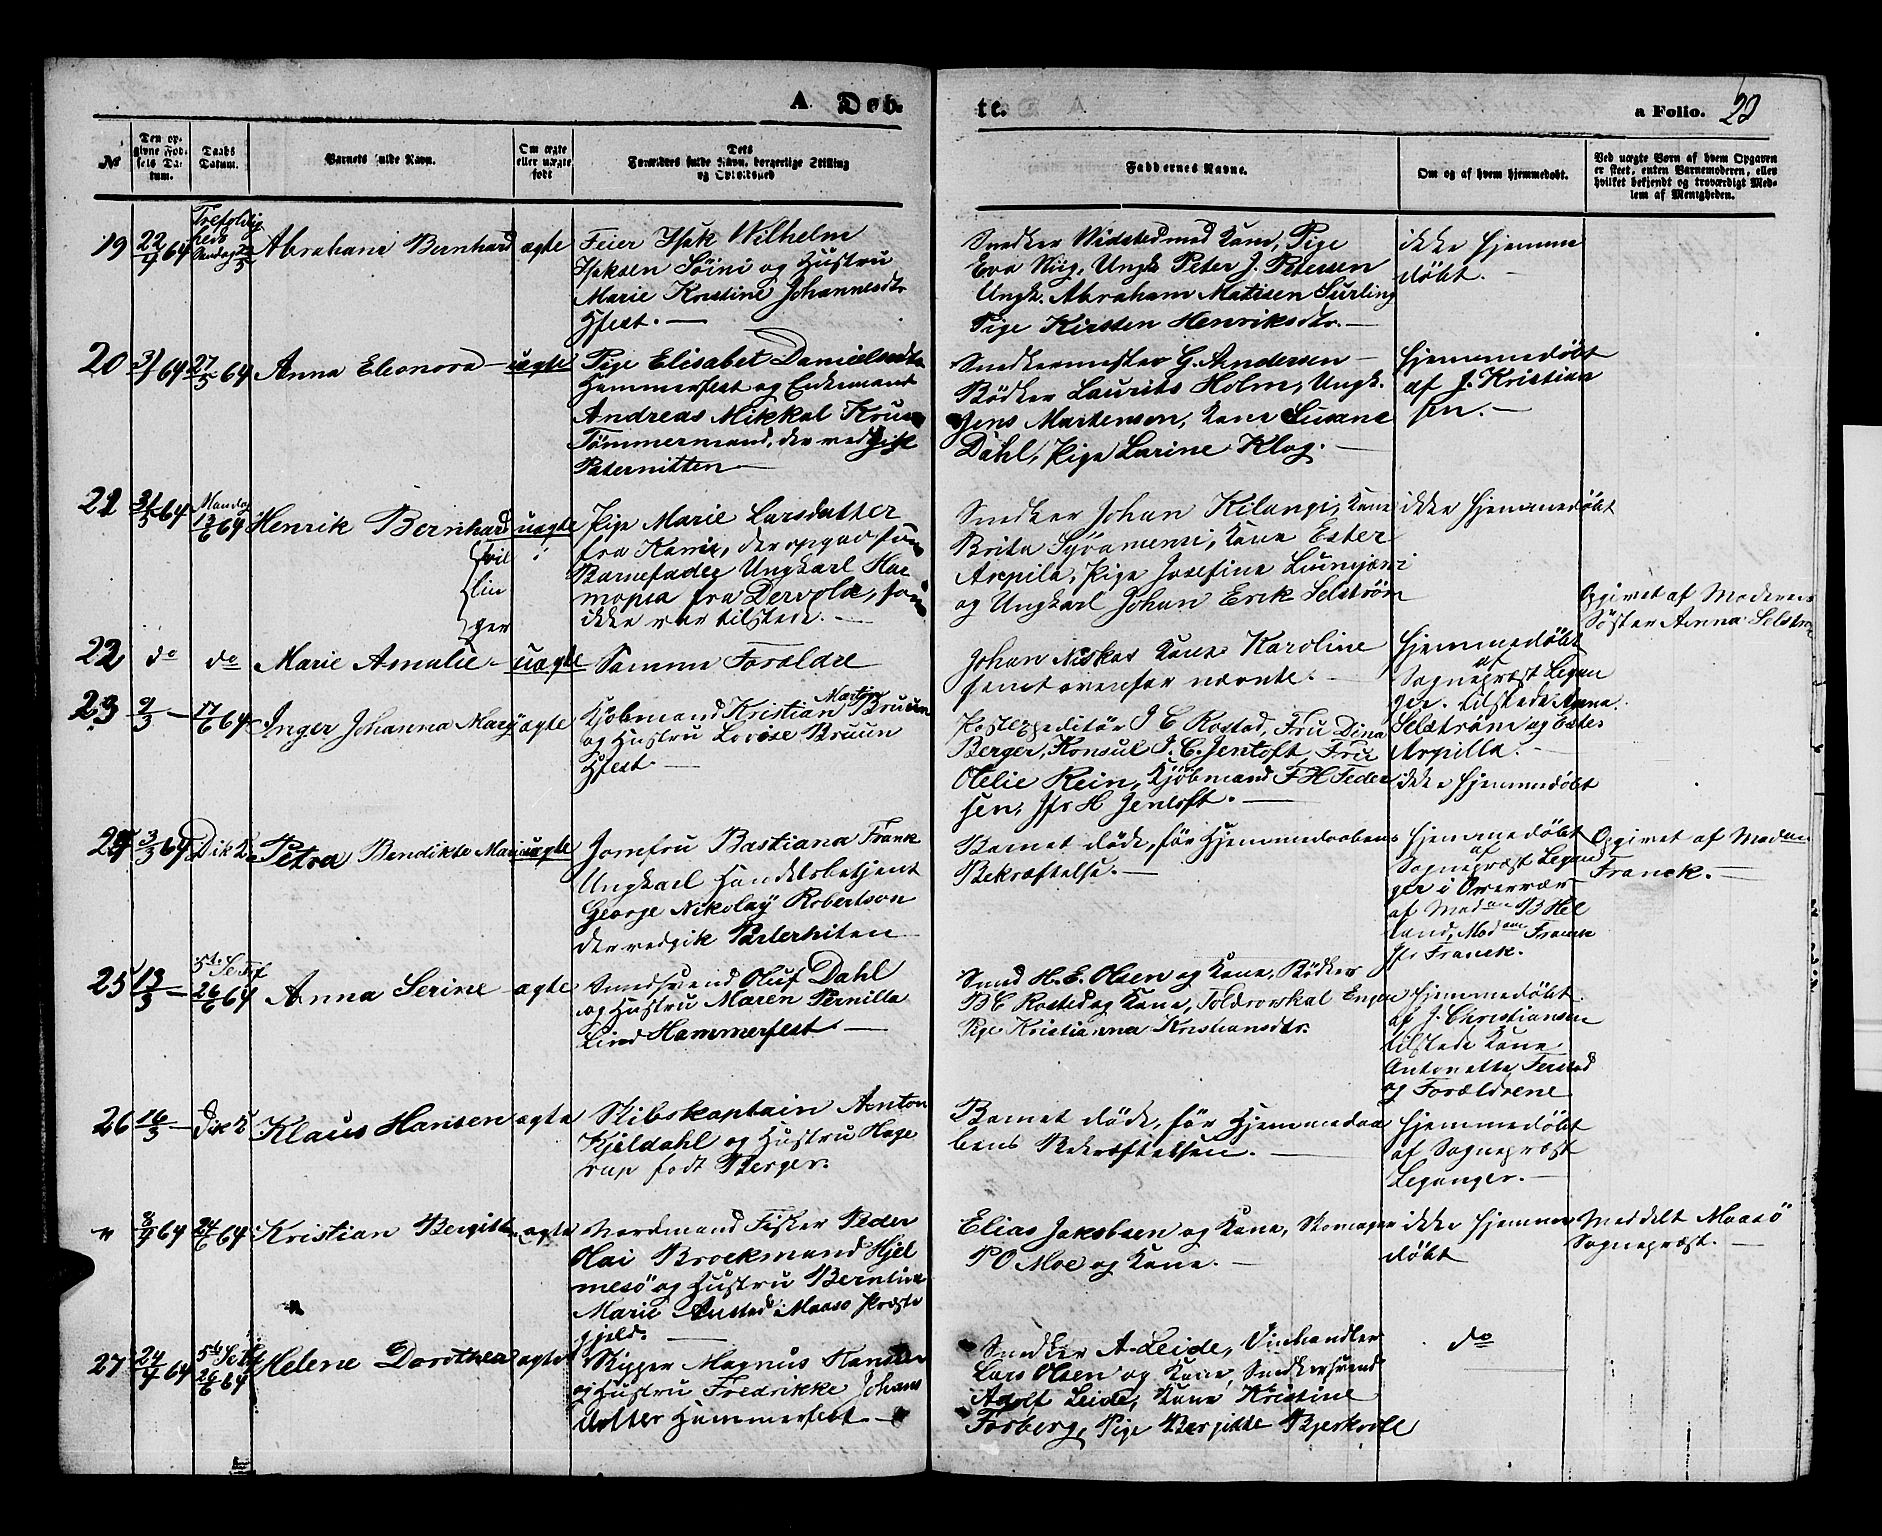 A Døb.
te.
a Folio. 22
No
Den op-
givne Fød-
sels Da-
tum.
Daabs
Datum.
Barnets fulde Navn.
Om ægte
eller uægte
født
Dets
Forældres fulde Navn, borgerlige Stilling
og Opholdssted
Faddernes Navne.
Om og af hvem hjemmedøbt.
Ved uægte Børn af hvem Opgaven
er skeet, enten Barnemoderen, eller
hvilket bekjendt og troværdigt Med-
lem af Menigheden.
19 22/4 64
Trefoldig
heds
Søndag 22/5
Abraham Bernhard ægte
Feier Isak Wilhelm
Isaksen Söini og Hustru
Marie Kristine Johannesdtr
Hfest. —
Snedker Widsted med Kone, Pige
Eva Niig, Ungk. Peter J. Petersen
Ungk. Abraham Matisen Surling
Pige Kirsten Henriksdtr. —
ikke hjemme
døbt. —
20 64 27/5 64 Anna Eleonora — uægte
Pige Elisabet Danielsdtr
Hammerfest og Enkemand
Andreas Mikkal Kruse
Tömmermand, der vedgik
Paternitten —
Snedkermester G. Andersen —
Bödker Laurits Holm, Ungk.
Jens Mortenson, Kone Susane
Dahl, Pige Larine Klog. —
hjemmedøbt
af J. Kristian
sen. —
21 31/5 64
Mandag
13/6 64
Henrik Bernhard uægte
tvil
lin
ger
Pige Marie Larsdatter
fra Kemie, der opgav som
Barnefader Ungkarl Har
mopia fra Dervola, som
ikke var tilstede. —
Snedker Johan Kilangi, Kone
Brita Syvameni, Kone Ester
Arpila, Pige Josefine
og Ungkarl Johan Erik Selström
ikke hjemmedøbt
Opgivet af Moderens
Söster Anna Selström
22 do do Marie Amalie — uægte
Samme Forældre
Johan Niskas Kone Karoline
samt ovenfor nævnte. —
hjemmedøbt
af
Sognepræst Legan
ger. tilstede Anna
Selström og Ester
Arpilla. —
23 9/3 — 17/6 64 Inger Johanna Mary ægte
Kjöbmand Kristian Martin Bruun
og Hustru Lovise Bruun
Hfest. —
Postexpeditör J C Rostad, Fru Dina
Berger, Konsul J. C. Jentoft, Fru
Otelie Rein, Kjöbmand F H Feder
sen, Jfr H Jentoft. —
ikke hjemmedøbt
24 3/3 64 Petra Bendikte Mari uægte
Jomfru Bastiana Frank
Ungkarl Handelsbetjent
George Nikolay Robertson
der vedgik Paterniten —
Barnet døde, før Hjemmedaabens
Bekræftelse. —
hjemmedøbt
af
Sognepræst Legan
ger i Overvær
af Madam B Hel
land, Madam Franck
Jfr Franck.
Opgivet af Madam
Franck. —
25 13/3 —
26/6 64
Anna Serine ægte
Smedsvend Oluf Dahl
og Hustru Maren Pernilla
Lind Hammerfest. —
Smed H. E. Olsen og Kone, Bödker
B C Rosted og Kone, Toldrorskal Engen
Pige Kristianna Kristiansdtr.
hjemmedøbt
af J. Christiansen
tilstede Kone
Antonette Ferstad
og Forældrene
26 16/3 — Klaus Hansen ægte
Skibskaptain Anton
Kjeldahl og Hustru Hage
rup født Berger.
Barnet døde, før Hjemmedaa
bens Bekræftelsen. —
hjemmedøbt
af Sognepræst
Leganger. —
n 8/4 64 24/6 64 Kristian Bergitte ægte
Nordmand Fisker Peder
Hai Brochsmand Hjel
mesö og Hustru Berntine
Marie Anstad i Maasö Præste
gjeld. —
Elias Jakobsen og Kone, Skomager
P O Moe og Kone. —
ikke hjemme
døbt
Meddelt Maasö
Sognepræst. —
27 24/4 64
26/6 64
Helene Dorothea ægte
Skipper Magnus Hansen
og Hustru Fredrikke Johans
datter Hammerfest —
Snedker A. Leide, Vinhandler
Lars Olsen og Kone, Snedkersvend
Adolf Leide, Kone Kristine
Forberg, Pige Bergitte Bjerkvoll
do